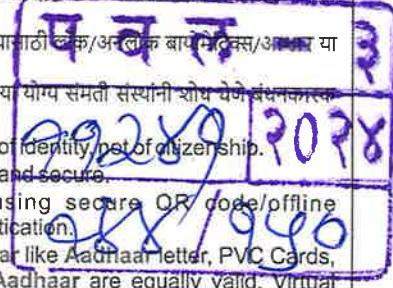 पवल - ३
लॉक/अनलॉक बायोमेट्रिक्स/आधार या
या योग्य संमती संस्थांनी शोध घेणे बंधनकारक
११२४१ २०२४
of identity, not of citizenship.
and secure.
using secure QR code/offline
tication.
/१५०
ar like Aadhaar letter, PVC Cards,
Aadhaar are equally valid. Virtual